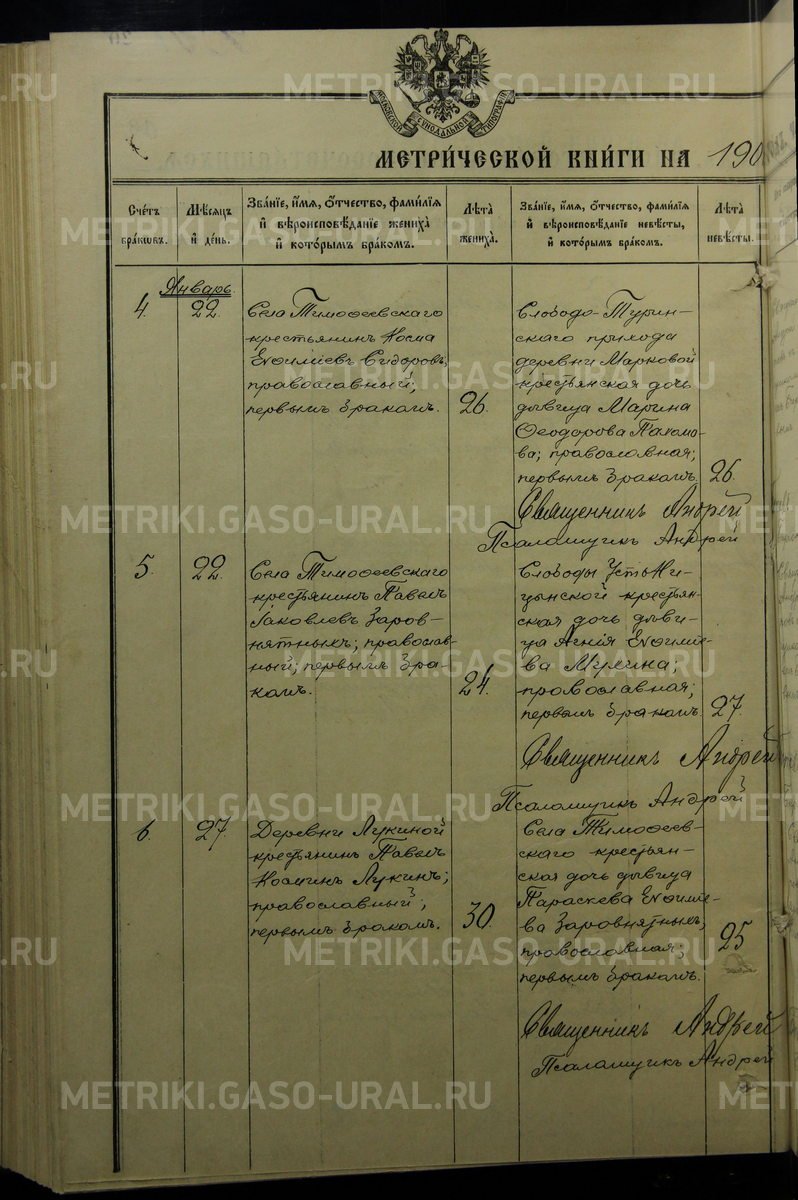 МОСКОВСКОЙ СѴНОДАЛЬНОЙ ТИПОГРАФІИ
МЕТРИ́ЧЕСКОЙ КНИ́ГИ НА 190
Сче́тъ бра́ковъ.
Мѣ́сяцъ и де́нь.
Зва́ніе, и́мя, о́тчество, фами́лія и вѣроисповѣ́даніе жениха̀ и кото́рымъ бра́комъ.
Лѣта̀ жениха̀.
Зва́ніе, и́мя, о́тчество, фами́лія и вѣроисповѣ́даніе невѣ́сты, и кото́рымъ бра́комъ.
Лѣта̀ невѣ́сты.
Январь
4. 22.
Села Тимофеевскаго
крестьянинъ Косма
Евфиміевъ Сидоровъ,
православный;
первымъ бракомъ.
26.
Слободо-Турин-
скаго прихода
деревни Марковой
крестьянская дочь
дѣвица Марина
Феодорова Пахомо-
ва; православная;
первымъ бракомъ.
26.
Священникъ Андрей
Псаломщикъ Андрей
5. 22.
Села Тимофеевскаго
крестьянинъ Павелъ
Іаковлевъ Заров-
нятныхъ; православ-
ный; первымъ бра-
комъ.
24.
Слободы Усть-Ни-
цынской крестьян-
ская дочь дѣви-
ца Агнія Евфиміе-
ва Мухина;
православная;
первымъ бракомъ.
27.
Священникъ Андрей
Псаломщикъ Андрей
6. 27.
Деревни Лукиной
крестьянинъ Павелъ
Косминъ Лукинъ;
православный;
первымъ бракомъ.
30.
Села Тимофеев-
скаго крестьян-
ская дочь дѣвица
Параскева Евфиміе-
ва Заровнятныхъ,
православная;
первымъ бракомъ.
25
Священникъ Андрей
Псаломщикъ Андрей
METRIKI.GASO-URAL.RU